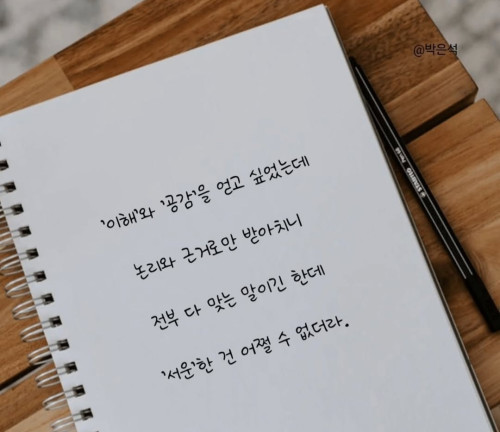 @박은석
'이해'와 '공감'을 얻고 싶었는데
논리와 근거로만 받아치니
전부 다 맞는 말이긴 한데
'서운'한 건 어쩔 수 없더라.